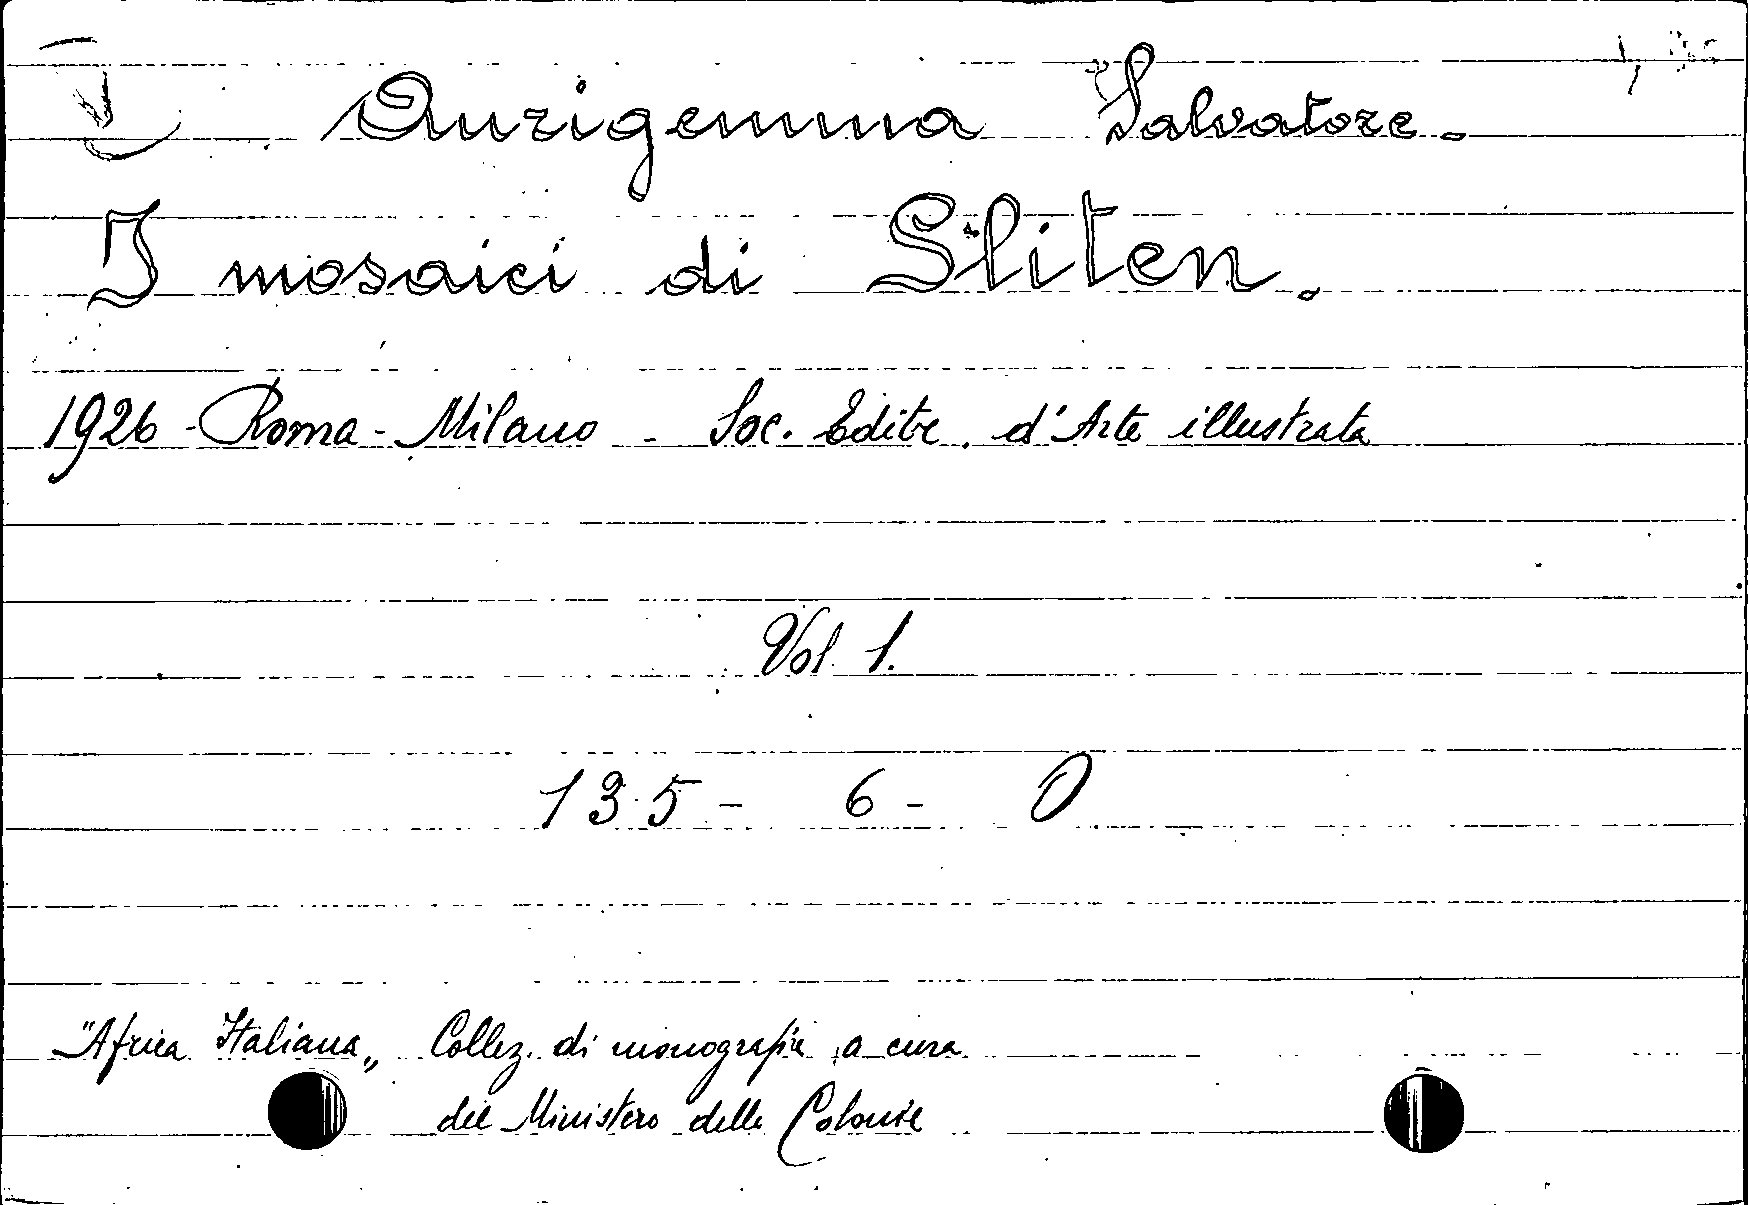 Aurigemma Salvatore.
I mosaici di Sliten.
1926 - Roma - Milano - Soc. Editr. d'Arte illustrata
Vol. 1.
135 - 6 - 0
"Africa Italiana„ Collez. di monografie a cura
del Ministero delle Colonie